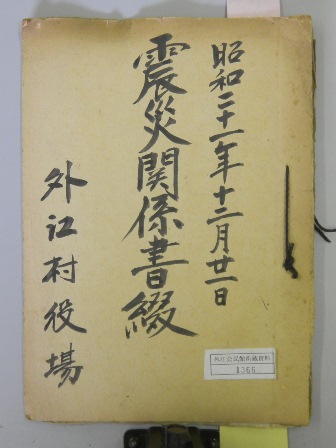 昭和二十一年十二月廿一日
震災関係書綴
外江村役場
外江公民館所蔵資料
1366